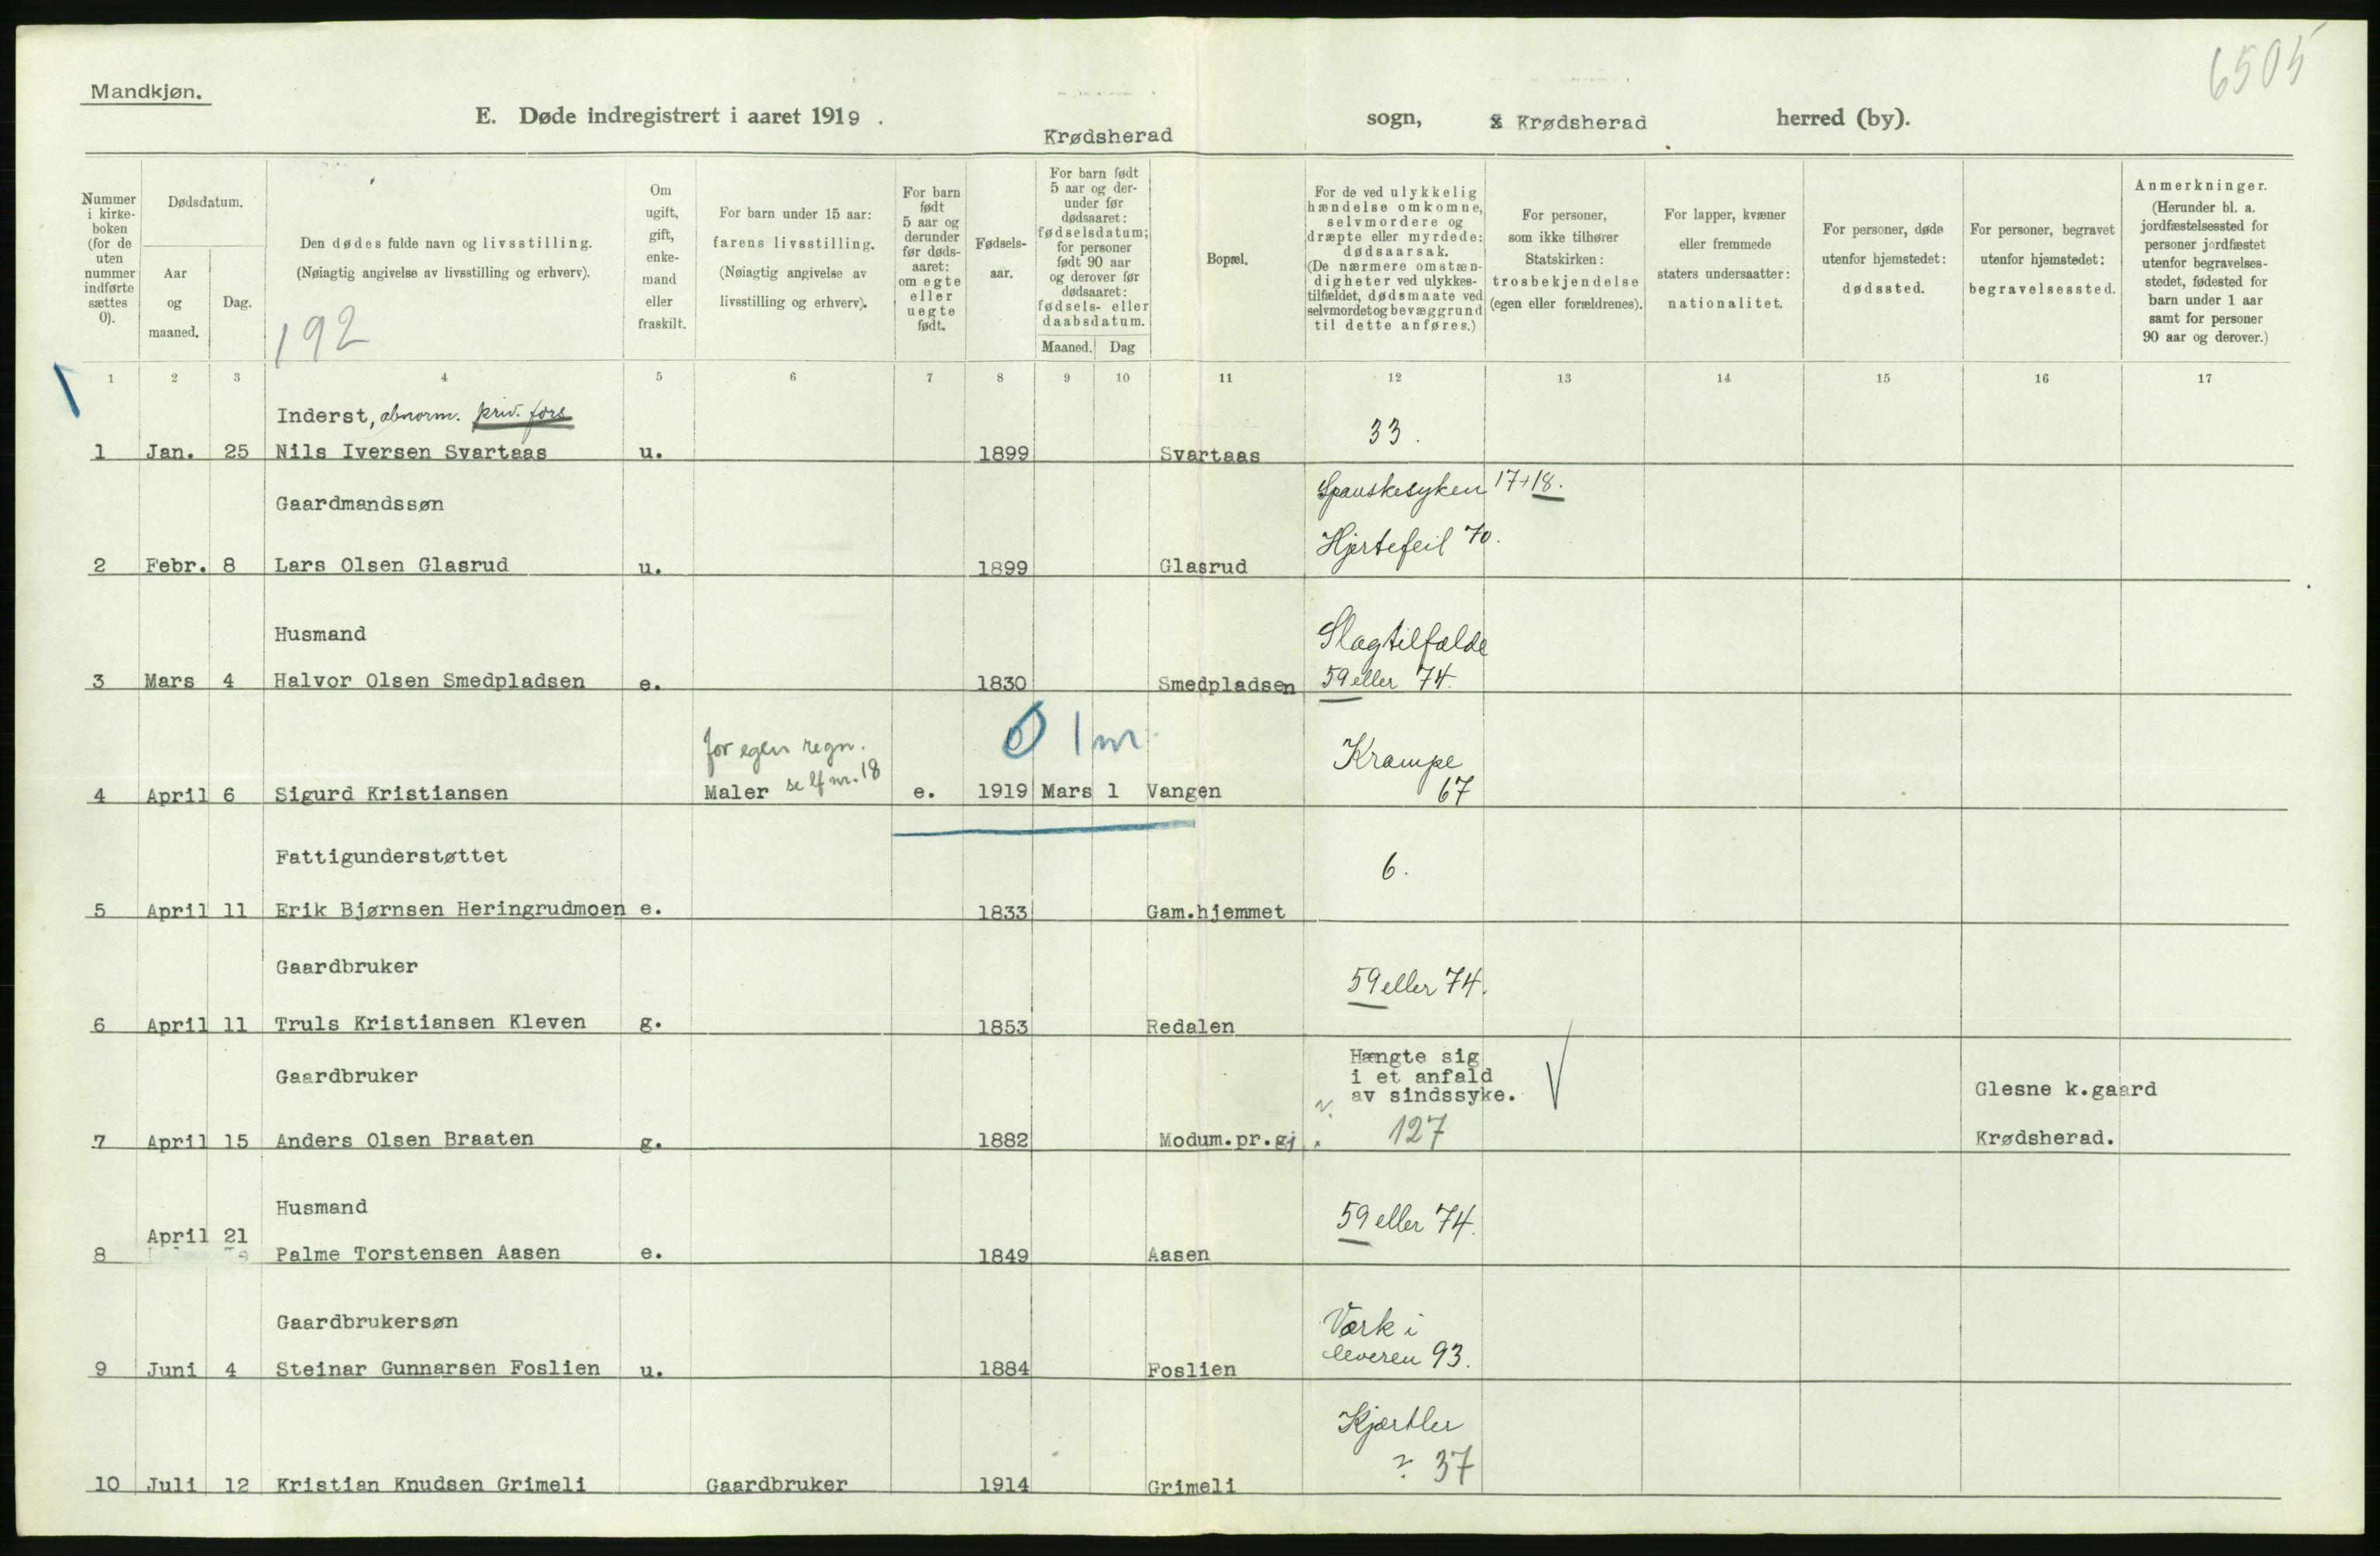 6505
Mandkjøn.
E. Døde indregistrert i aaret 1919.
Krødsherad sogn, Krødsherad herred (by).
Nummer i kirkeboken (for de uten nummer indførte sættes 0).
Dødsdatum.
Aar og maaned.
Dag.
Den dødes fulde navn og livsstilling.
(Nøiagtig angivelse av livsstilling og erhverv).
192
Om ugift, gift, enkemand eller fraskilt.
For barn under 15 aar: farens livsstilling.
(Nøiagtig angivelse av livsstilling og erhverv).
For barn født 5 aar og derunder før dødsaaret: om egte eller uegte født.
Fødselsaar.
For barn født 5 aar og derunder før dødsaaret: fødselsdatum; for personer født 90 aar og derover før dødsaaret: fødsels- eller daabsdatum.
Maaned. Dag
Bopæl.
For de ved ulykkelig hændelse omkomne, selvmordere og dræpte eller myrdede: dødsaarsak.
(De nærmere omstændigheter ved ulykkestilfældet, dødsmaate ved selvmordet og bevæggrund til dette anføres.)
For personer, som ikke tilhører Statskirken: trosbekjendelse (egen eller forældrenes).
For lapper, kvæner eller fremmede staters undersaatter: nationalitet.
For personer, døde utenfor hjemstedet: dødssted.
For personer, begravet utenfor hjemstedet: begravelsessted.
Anmerkninger.
(Herunder bl. a. jordfæstelsessted for personer jordfæstet utenfor begravelsesstedet, fødested for barn under 1 aar samt for personer 90 aar og derover.)
1 2 3 4 5 6 7 8 9 10 11 12 13 14 15 16 17
Inderst, abnorm. priv. fors
33.
1 Jan. 25 Nils Iversen Svartaas u. 1899 Svartaas
Gaardmandssøn
Spanskesyken 17+18.
Hjertefeil 70.
2 Febr. 8 Lars Olsen Glasrud u. 1899 Glasrud
Husmand
Slagtilfælde
3 Mars 4 Halvor Olsen Smedpladsen e. 1830 Smedpladsen 59 eller 74.
for egen regn. 0 1 m. Krampe
4 April 6 Sigurd Kristiansen Maler se lf nr. 18 e. 1919 Mars 1 Vangen 67
Fattigunderstøttet
6.
5 April 11 Erik Bjørnsen Heringrudmoen e. 1833 Gam.hjemmet
Gaardbruker
59 eller 74.
6 April 11 Truls Kristiansen Kleven g. 1853 Redalen
Gaardbruker
Hængte sig
i et anfald
av sindssyke.
Glesne k.gaard
7 April 15 Anders Olsen Braaten g. 1882 Modum.pr.gj. 127 Krødsherad.
Husmand
59 eller 74.
8 April 21 Palme Torstensen Aasen e. 1849 Aasen
Gaardbrukersøn
Værk i
leveren 93.
9 Juni 4 Steinar Gunnarsen Foslien u. 1884 Foslien
Kjærtler
? 37
10 Juli 12 Kristian Knudsen Grimeli Gaardbruker 1914 Grimeli